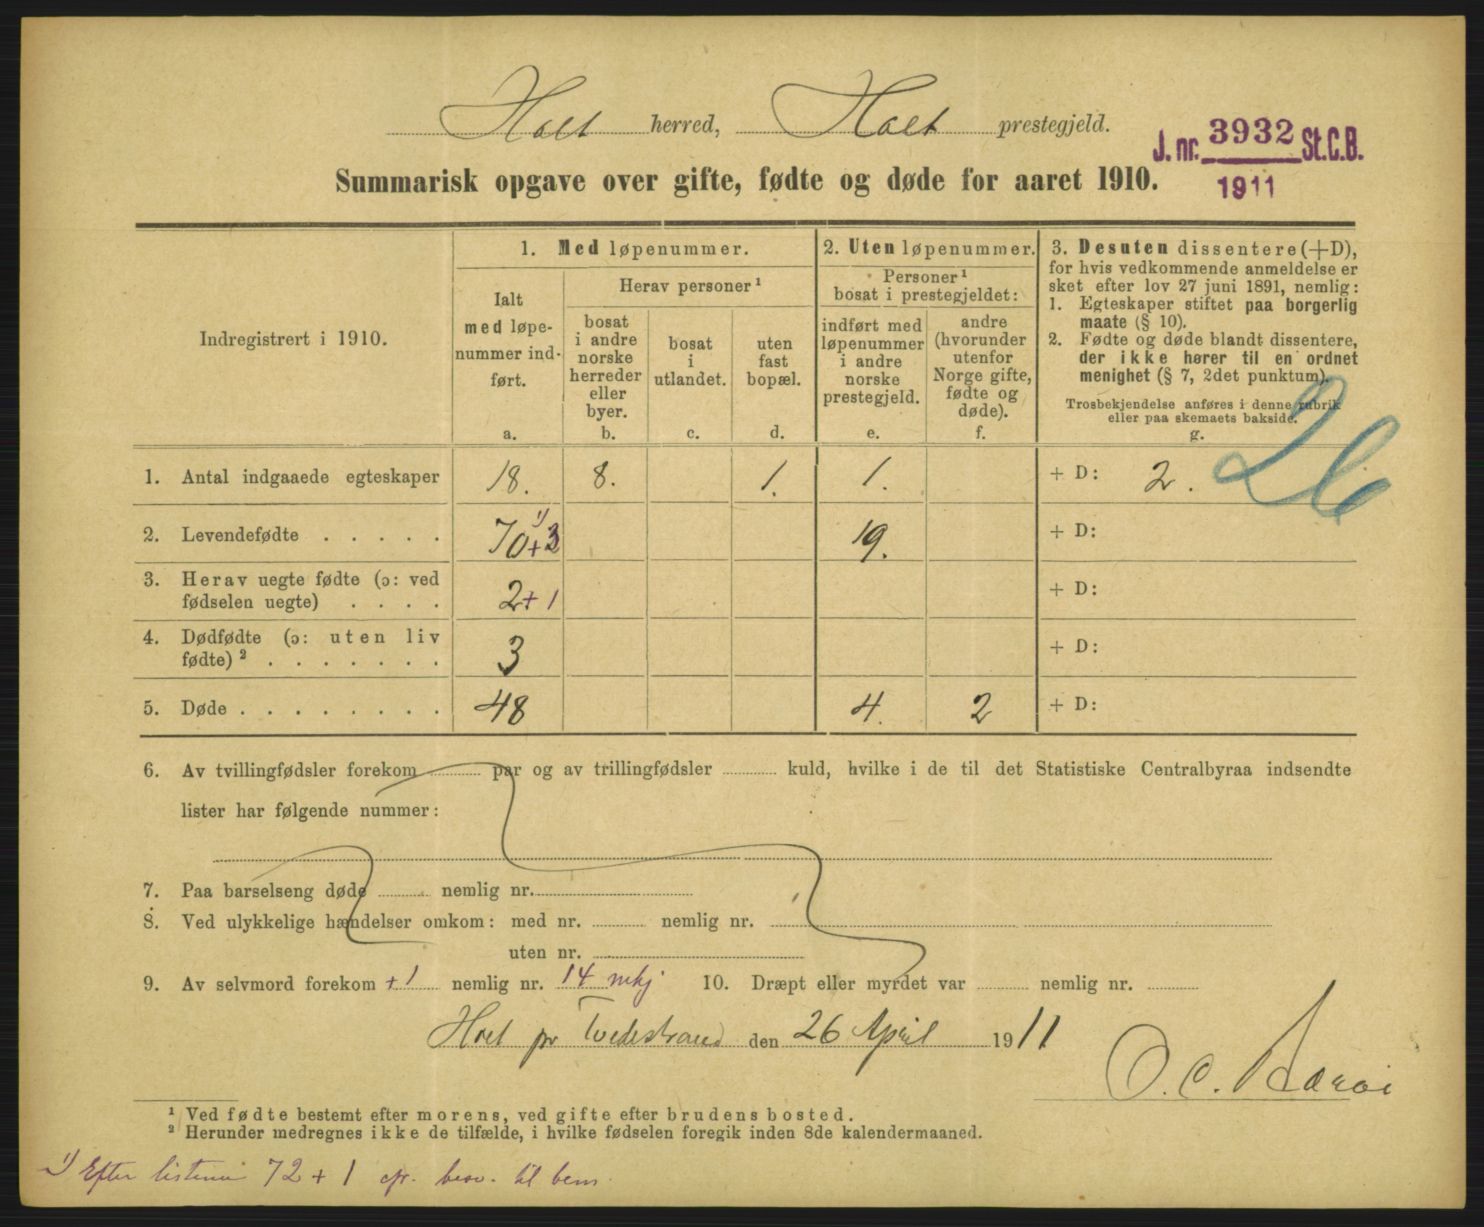 Holt herred, Holt prestegjeld.
J. nr. 3932 St.C.B.
1911
Summarisk opgave over gifte, fødte og døde for aaret 1910.
Indregistrert i 1910.
1. Med løpenummer.
Ialt
med løpe-
nummer ind-
ført.
a.
Herav personer ¹
bosat
i andre
norske
herreder
eller
byer.
b.
bosat
i
utlandet.
c.
uten
fast
bopæl.
d.
2. Uten løpenummer.
Personer ¹
bosat i prestegjeldet:
indført med
løpenummer
i andre
norske
prestegjeld.
e.
andre
(hvorunder
utenfor
Norge gifte,
fødte og
døde).
f.
3. Desuten dissentere (+D),
for hvis vedkommende anmeldelse er
sket efter lov 27 juni 1891, nemlig:
1. Egteskaper stiftet paa borgerlig
maate (§ 10).
2. Fødte og døde blandt dissentere,
der ikke hører til en ordnet
menighet (§ 7, 2det punktum).
Trosbekjendelse anføres i denne rubrik
eller paa skemaets bakside.
g.
26
1. Antal indgaaede egteskaper 18. 8. 1. 1. + D: 2.
2. Levendefødte . . . . . 70 ¹) + 3 19. + D:
3. Herav uegte fødte (ɔ: ved
fødselen uegte) . . . . 2 + 1 + D:
4. Dødfødte (ɔ: uten liv
fødte) ² . . . . . . . 3 + D:
5. Døde . . . . . . . . 48 4. 2 + D:
6. Av tvillingfødsler forekom ........ par og av trillingfødsler ........ kuld, hvilke i de til det Statistiske Centralbyraa indsendte
lister har følgende nummer:
7. Paa barselseng døde ........ nemlig nr. ........
8. Ved ulykkelige hændelser omkom: med nr. ........ nemlig nr. ........
uten nr. ........
9. Av selvmord forekom +1 nemlig nr. 14 mkj 10. Dræpt eller myrdet var ........ nemlig nr. ........
Holt pr Tvedestrand den 26 April 1911.
O. C.
¹ Ved fødte bestemt efter morens, ved gifte efter brudens bosted.
² Herunder medregnes ikke de tilfælde, i hvilke fødselen foregik inden 8de kalendermaaned.
¹) Efter listerne 72 + 1 cfr. besv. til bem.